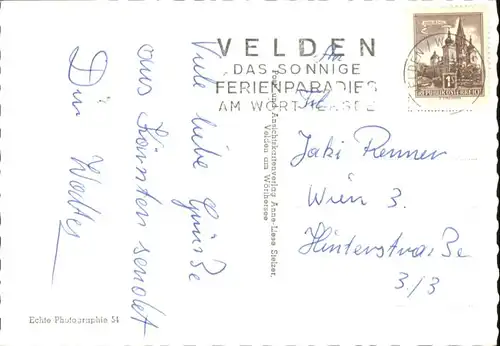 VELDEN
DAS SONNIGE
FERIENPARADIES
AM WÖRTHERSEE
An
Frl.
Jaki Renner
Wien 3.
Hinterstraße
3/3
Viele liebe Grüße
aus Kärnten sendet
Dir Walter
Foto- und Ansichtskartenverlag Anna-Liese Stelzer,
Velden am Wörthersee
Echte Photographie 54
REPUBLIK ÖSTERREICH